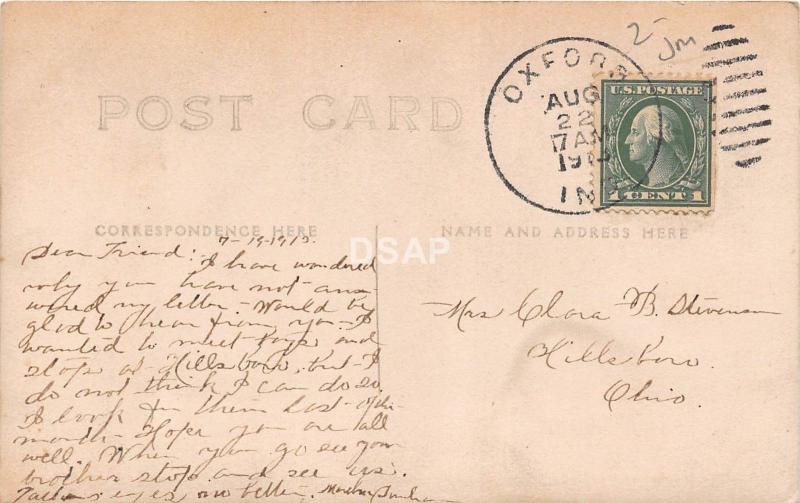 2-
Jm
OXFORD
AUG
22
7 AM
IND
U.S. POSTAGE
1 CENT 1
POST CARD
CORRESPONDENCE HERE
NAME AND ADDRESS HERE
DSAP
Dear Friend:
I have wondered
why you have not ans
wered my letter - Would be
glad to hear from you - I
wanted to meet and
stop at Hillsboro, but - I
do not think I can do so.
I look for them last - of this
month - Hope you are all
well. When you go see your
brother stop and see us.
eyes no better.
Mrs Clara B. Stevenson
Hillsboro.
Ohio.